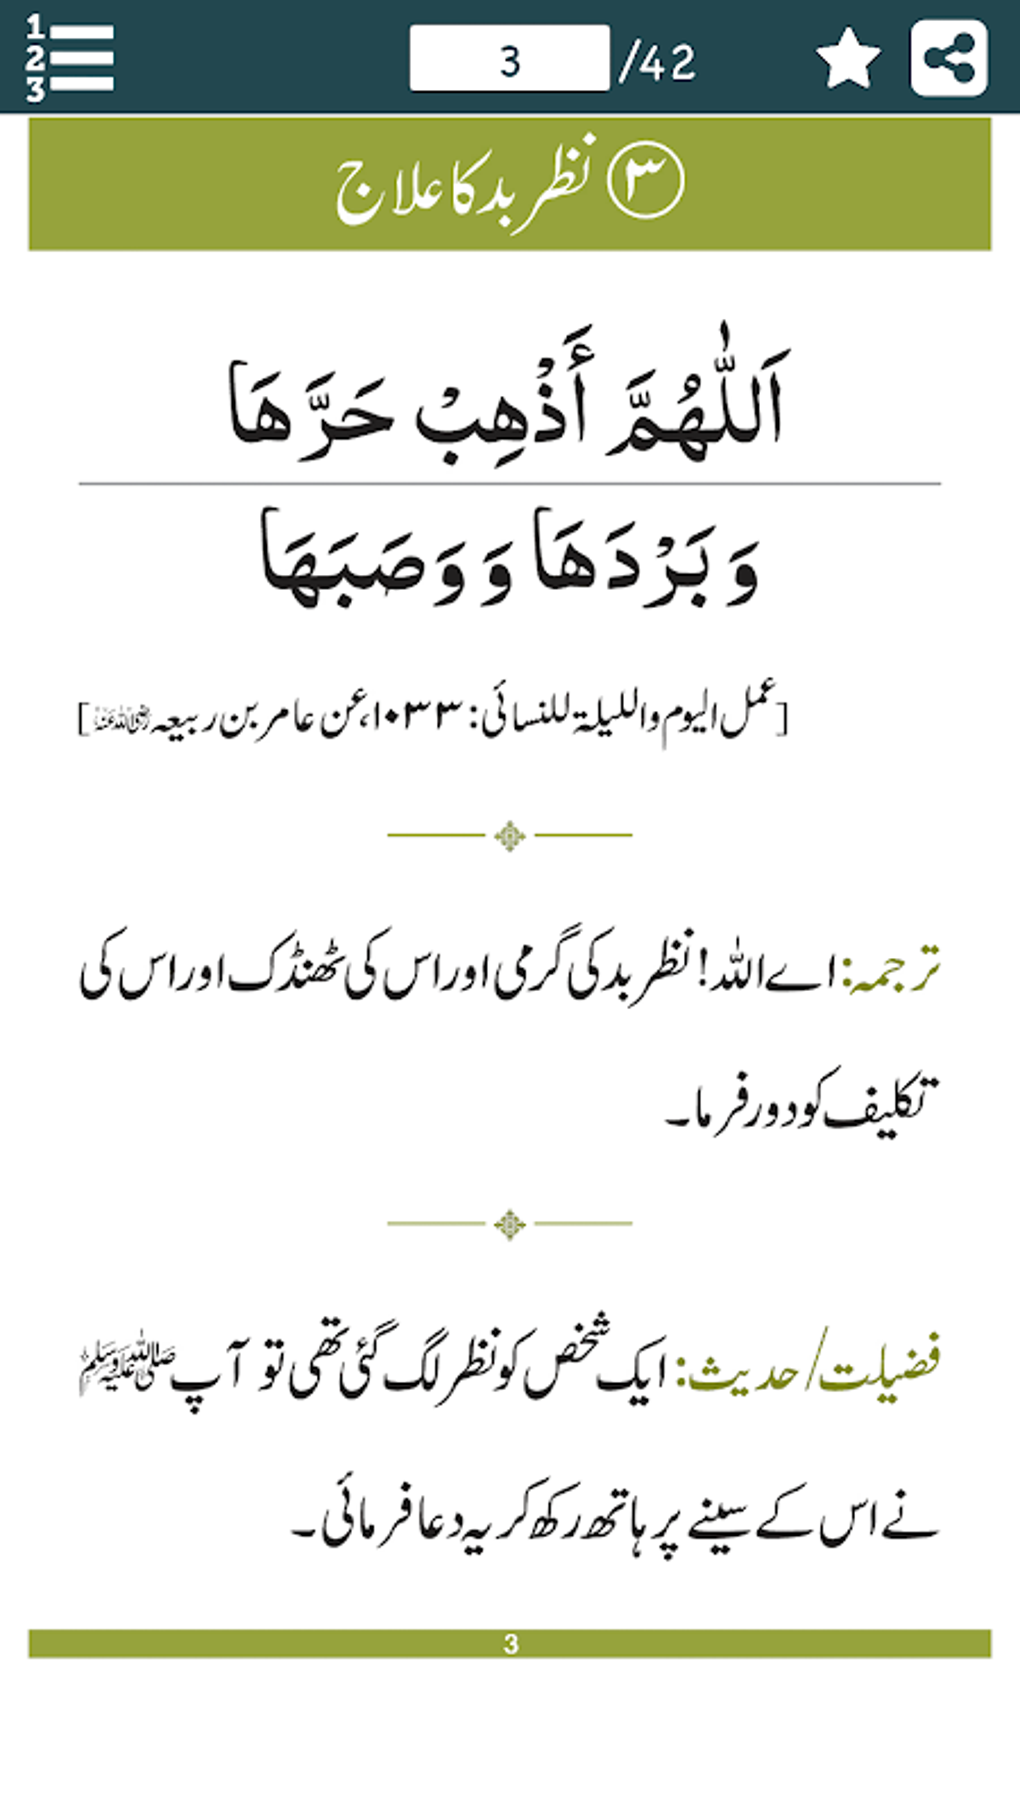 1
2
3
3 /42
۳ نظر بد کا علاج
اَللّٰهُمَّ أَذْهِبْ حَرَّهَا
وَبَرْدَهَا وَوَصَبَهَا
[عمل الیوم واللیلۃ للنسائی: ۱۰۳۳، عن عامر بن ربیعہ رضی اللہ عنہ]
ترجمہ: اے اللہ! نظر بد کی گرمی اور اس کی ٹھنڈک اور اس کی
تکلیف کو دور فرما۔
فضیلت/حدیث: ایک شخص کو نظر لگ گئی تھی تو آپ ﷺ
نے اس کے سینے پر ہاتھ رکھ کر یہ دعا فرمائی۔
3